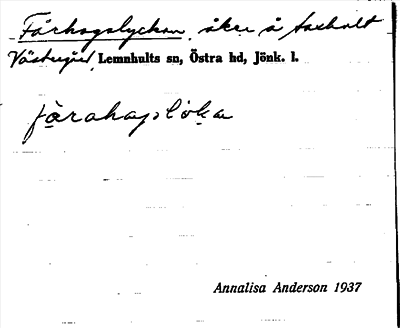 Fårhagslyckan, åker å Axeholt
Västergård, Lemnhults sn, Östra hd, Jönk. l.
fårahagslöka
Annalisa Anderson 1937